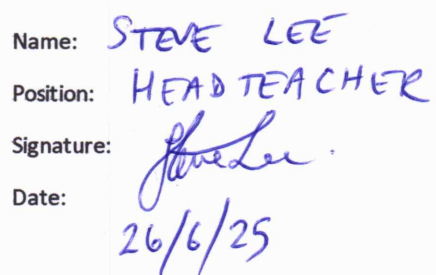 Name: STEVE LEE
Position: HEADTEACHER
Signature: Steve Lee.
Date:
26/6/25